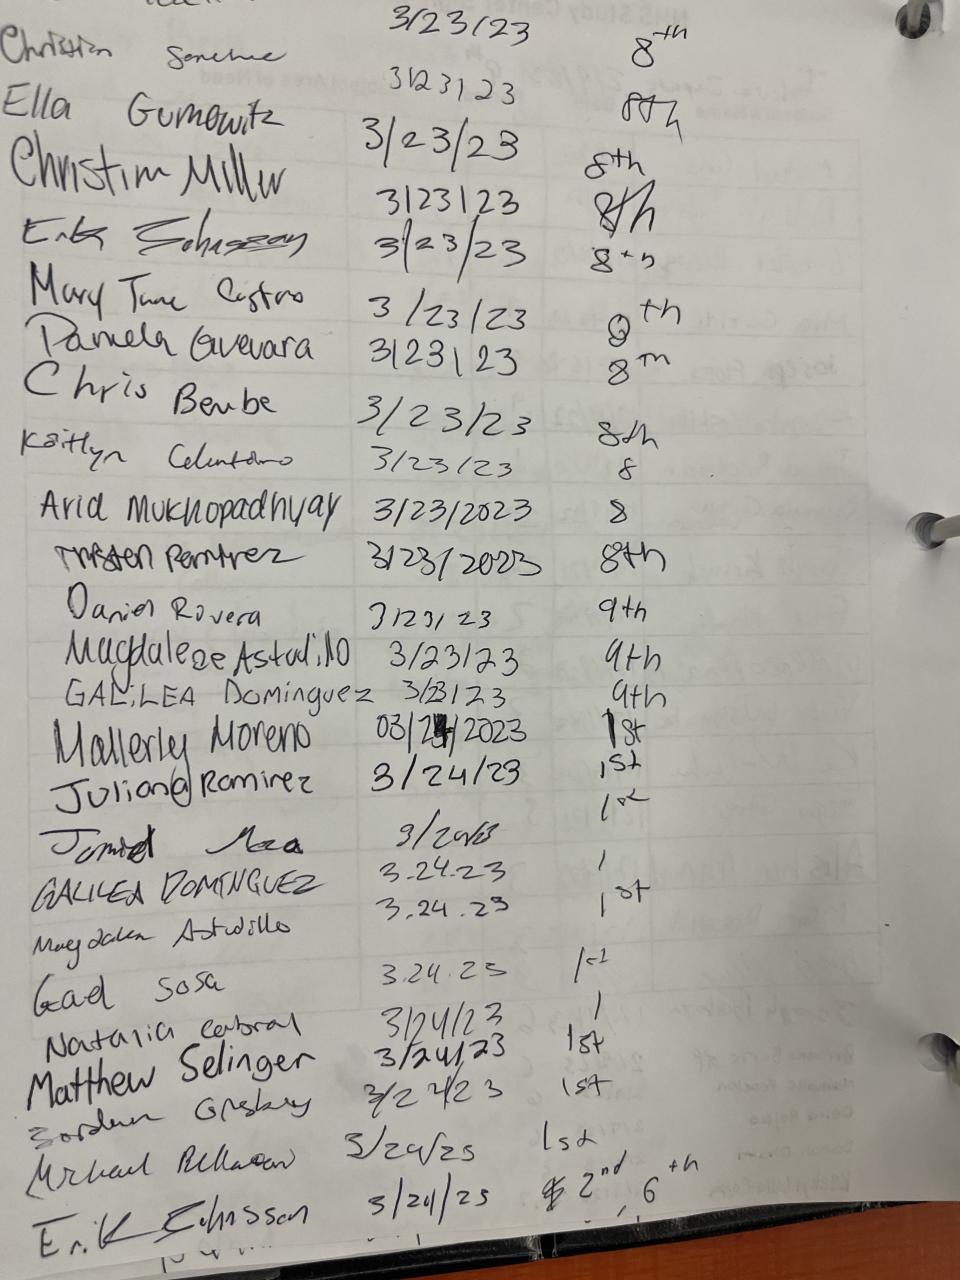 Christian 3/23/23 8th
Ella Gumowitz 3/23/23 8th
Christian Miller 3/23/23 8th
Erik 3/23/23 8th
Mary Jane Castro 3/23/23 8th
Pamela Guevara 3/23/23 8th
Chris Berube 3/23/23 8th
Kaitlyn 3/23/23 8th
3/23/23 8
Aria Mukhopadhyay 3/23/2023 8
Tristen Ramirez 3/23/2023 8th
Daniel Rovera 3/23/23 9th
Magdalene Astudillo 3/23/23 9th
GALiLEA Dominguez 3/23/23 9th
Mallerly Moreno 03/24/2023 1st
Juliana Ramirez 3/24/23 1st
1st
GALILEA DOMINGUEZ 3.24.23 1
Magdalen Astudillo 3.24.23 1st
Gad Sosa 3.24.23 1st
Natalia Cabral 3/24/23 1
Matthew Selinger 3/24/23 1st
3/24/23 1st
Michael 3/24/23 1st
Erik Johnsson 3/24/23 2nd 6th